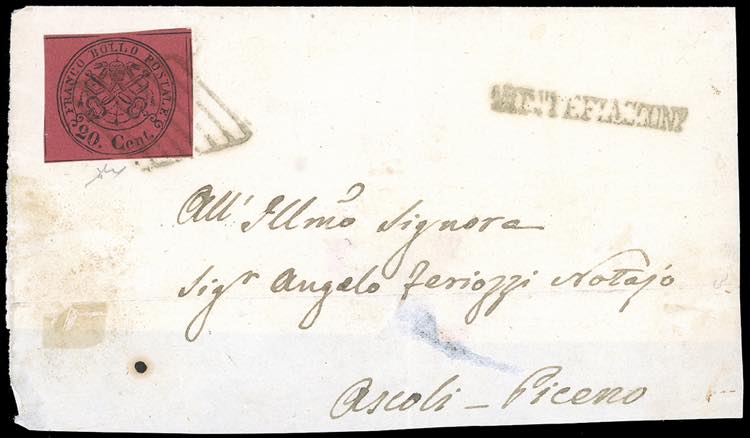 FRANCO BOLLO POSTALE
20. Cent.
MONTEFIASCONE
All' Illmo Signora
Sigr Angelo Feriozzi Notajo
Ascoli - Piceno